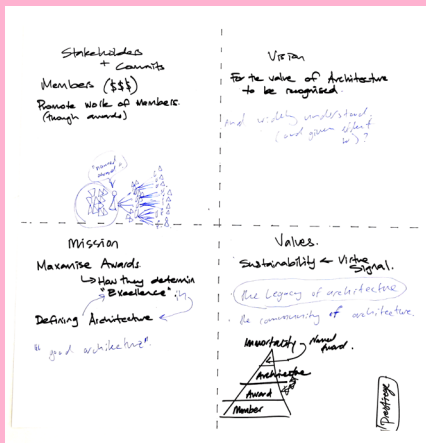 Stakeholders
+ Commits
Members ($$$)
Promote work of Members.
(though awards)
"Named
award"
Vision
For the value of Architecture
to be recognised.
and widely understand.
(and given
Mission
Maxamise Awards.
↳ How they determin
"Excellence"
Defining Architecture
"good architecture".
Values.
Sustainability ← Virtue
Signal.
the Legacy of architecture
the community of architecture.
Immortality
Named
Award.
Architecture
Award
Member
Prestiege